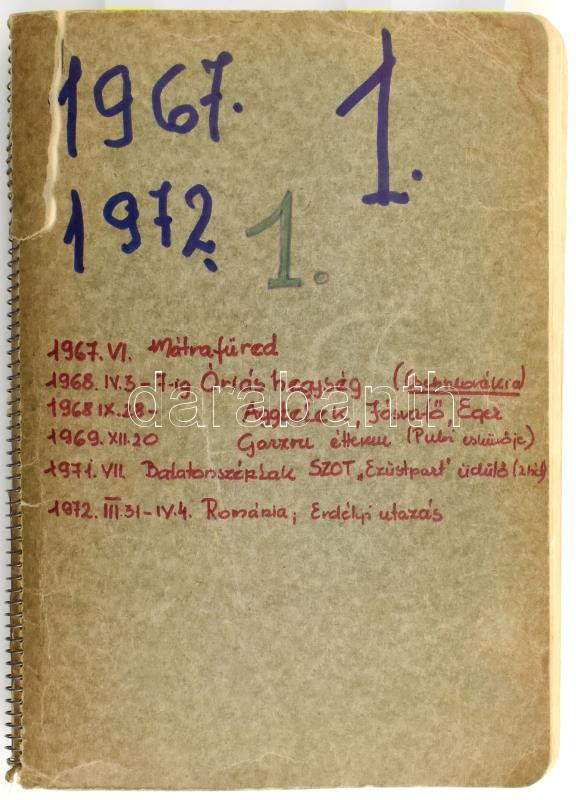 1967. 1.
1972. 1.
1967. VI. Mátrafüred
1968. IV. 3-7-ig Óriás hegység (Csehszlovákia)
1968 IX. 28- Aggtelek, Jósvafő, Eger
1969. XII. 20 étterem (Pubi esküvője)
1971. VII. Balatonszéplak SZOT "Ezüstpart" üdülő (2 hét)
1972. III. 31-IV. 4. Románia; Erdélyi utazás
darabanth